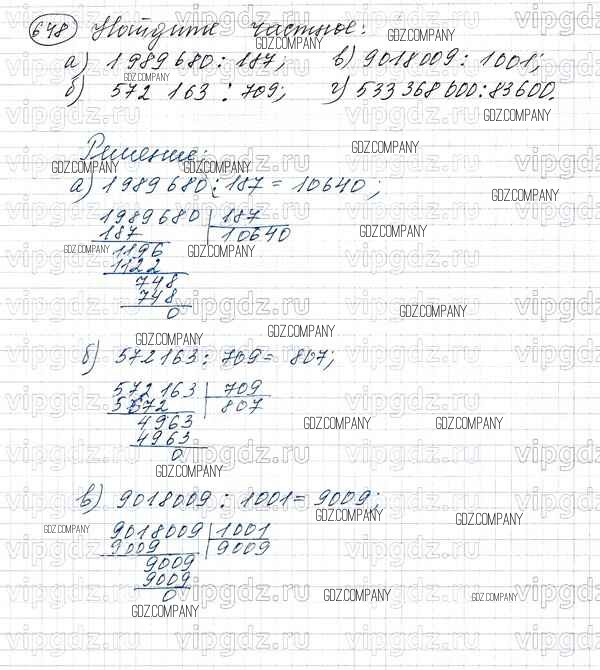 648 Найдите частное:
а) 1989680 : 187; в) 9018009 : 1001;
б) 572 163 : 709; г) 533 368 000 : 83600.
Решение:
а) 1989 680 : 187 = 10640;
1989680 187
187 10640
1196
1122
748
748
0
б) 572163 : 709 = 807;
572163 709
5672 807
4963
4963
0
в) 9018009 : 1001 = 9009;
9018009 1001
9009 9009
9009
9009
0
GDZ.COMPANY
vipgdz.ru